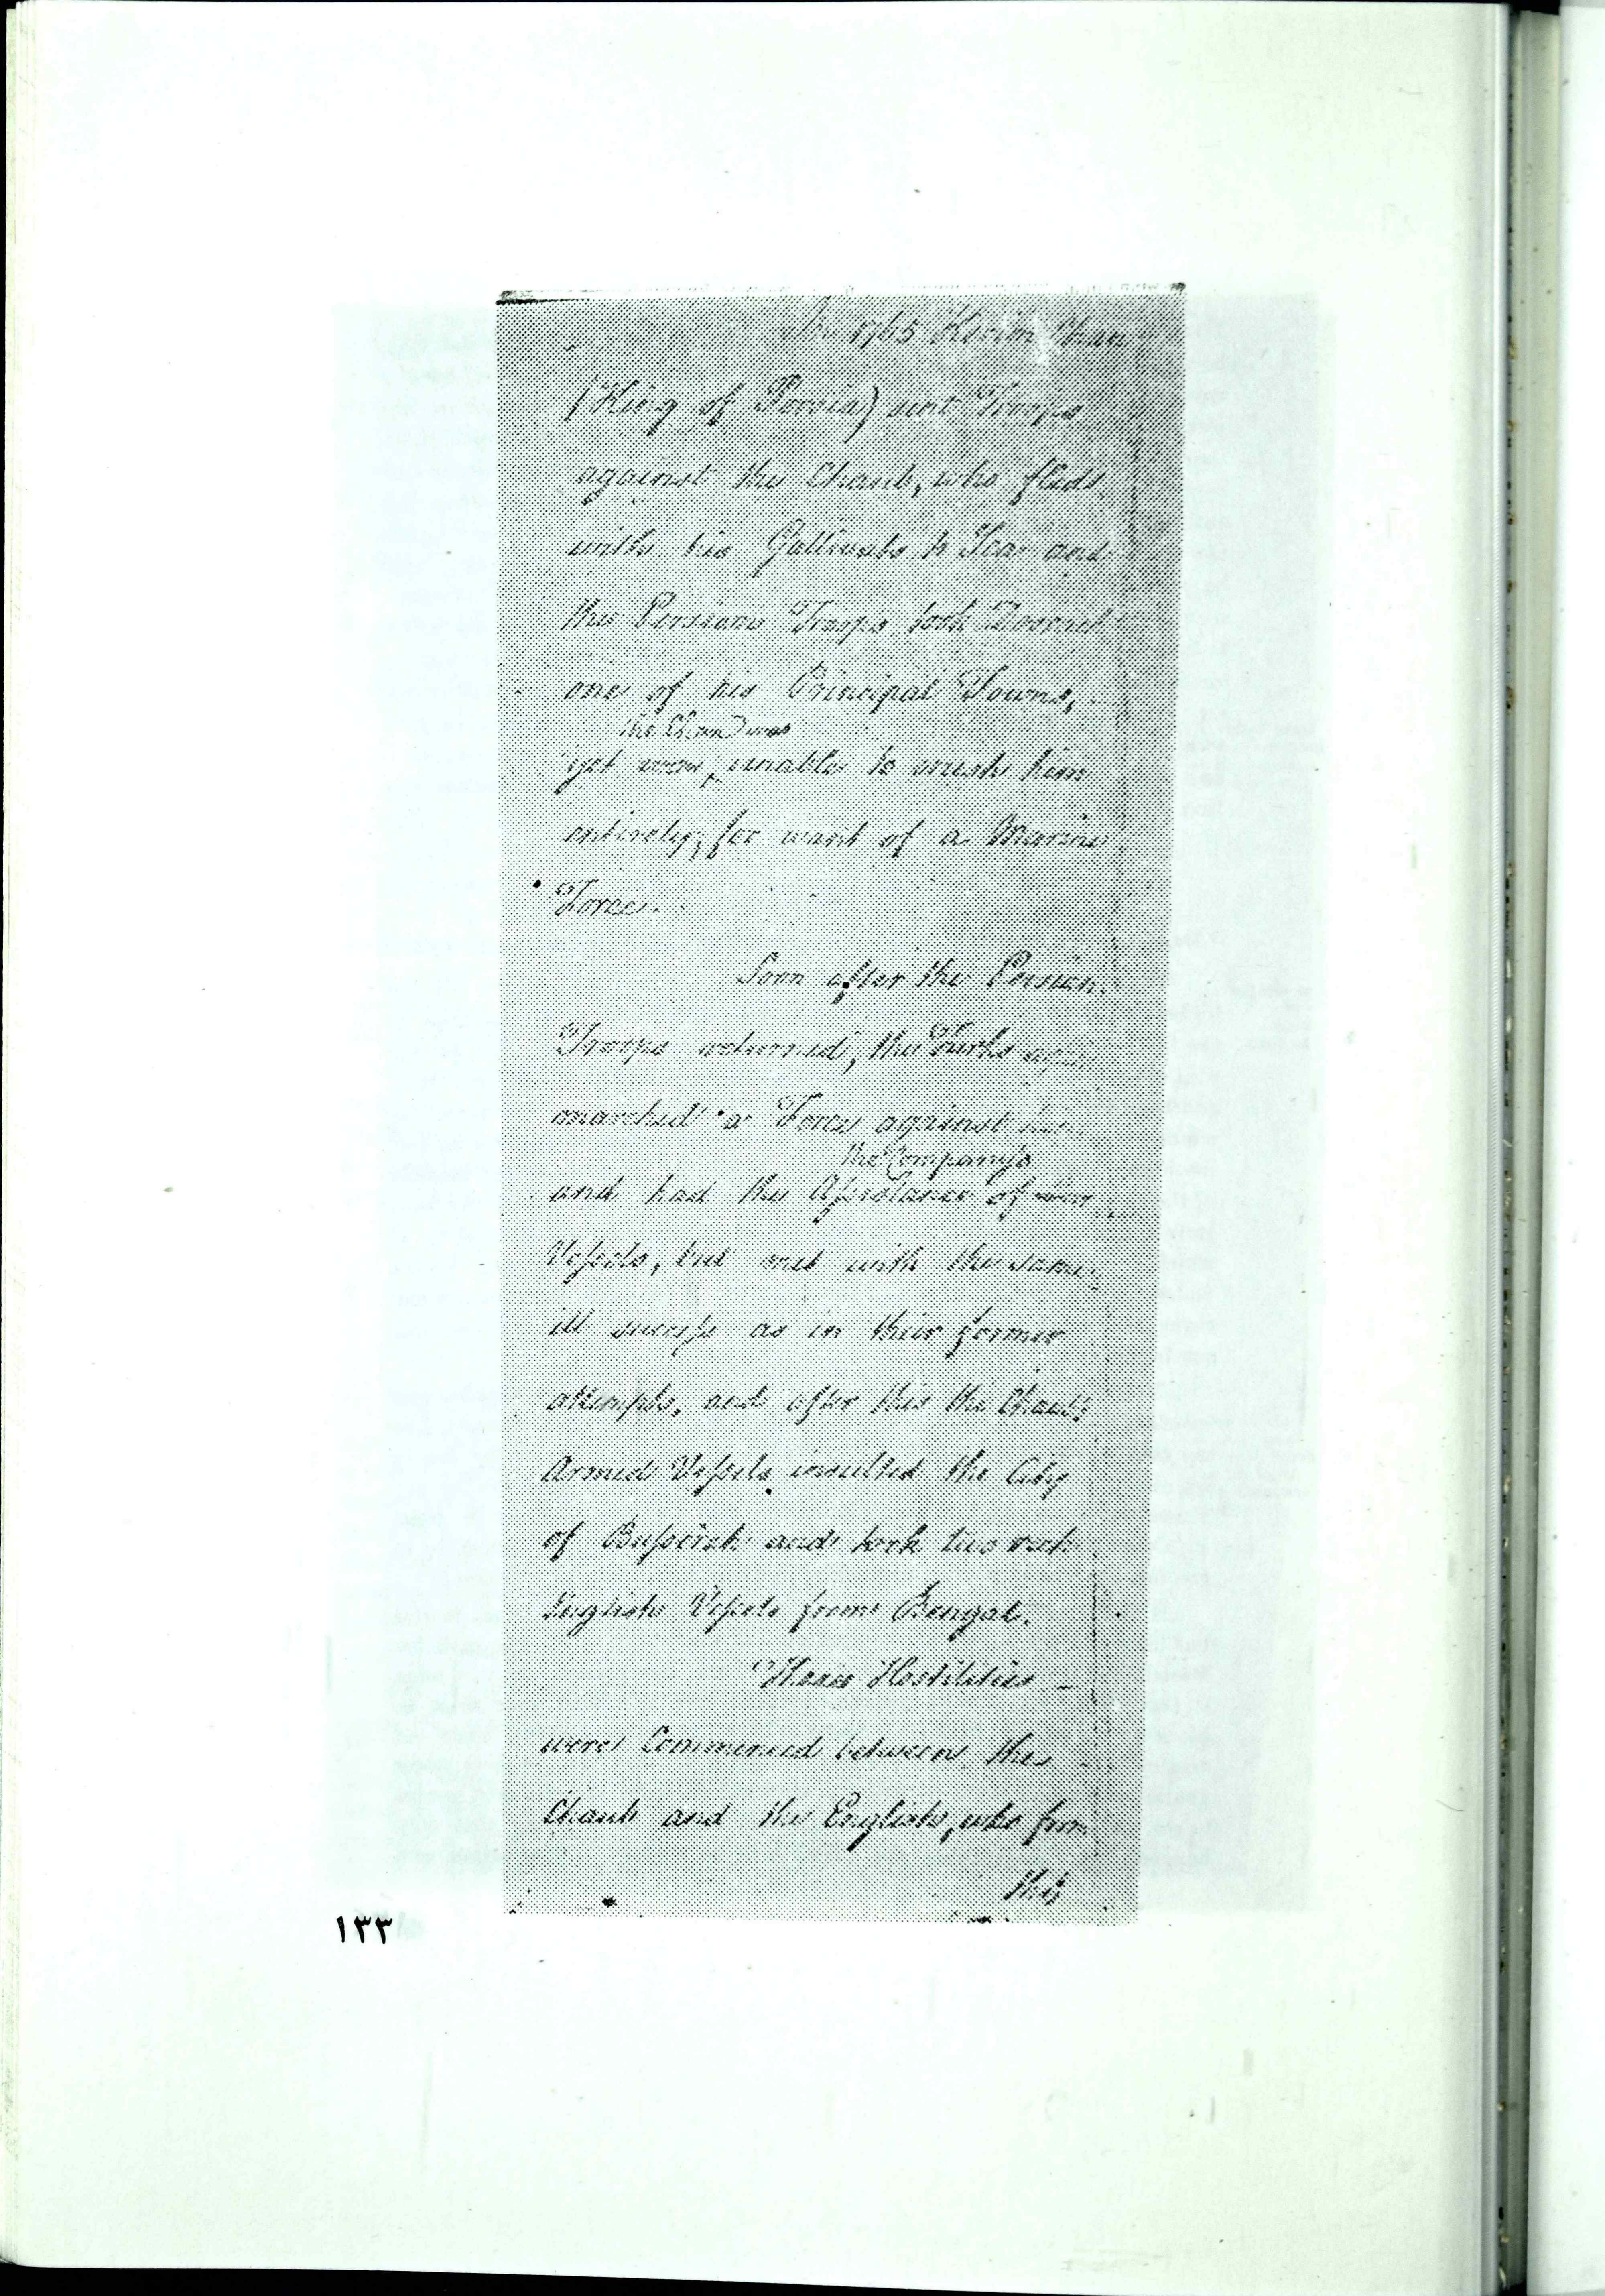 In 1765 Kerim Chan
(King of Persia) sent Troops
against the Chaub, who fled
with his Gallivats to Sea and
the Persian Troops took Doorack
one of his Principal Towns,
the Chan was
yet were unable to crush him
entirely, for want of a Marine
Force.
Soon after the Persian
Troops returned, the Turks again
marched a Force against him
the Company's
and had the Assistance of
Vessels, but met with the same
ill success as in their former
attempts, and after this the Chaub's
Armed Vessels insulted the City
of Bussorah and took two rich
English Vessels from Bengal.
Thence Hostilities
were Commenced between the
Chaub and the English, who from
this
١٣٣